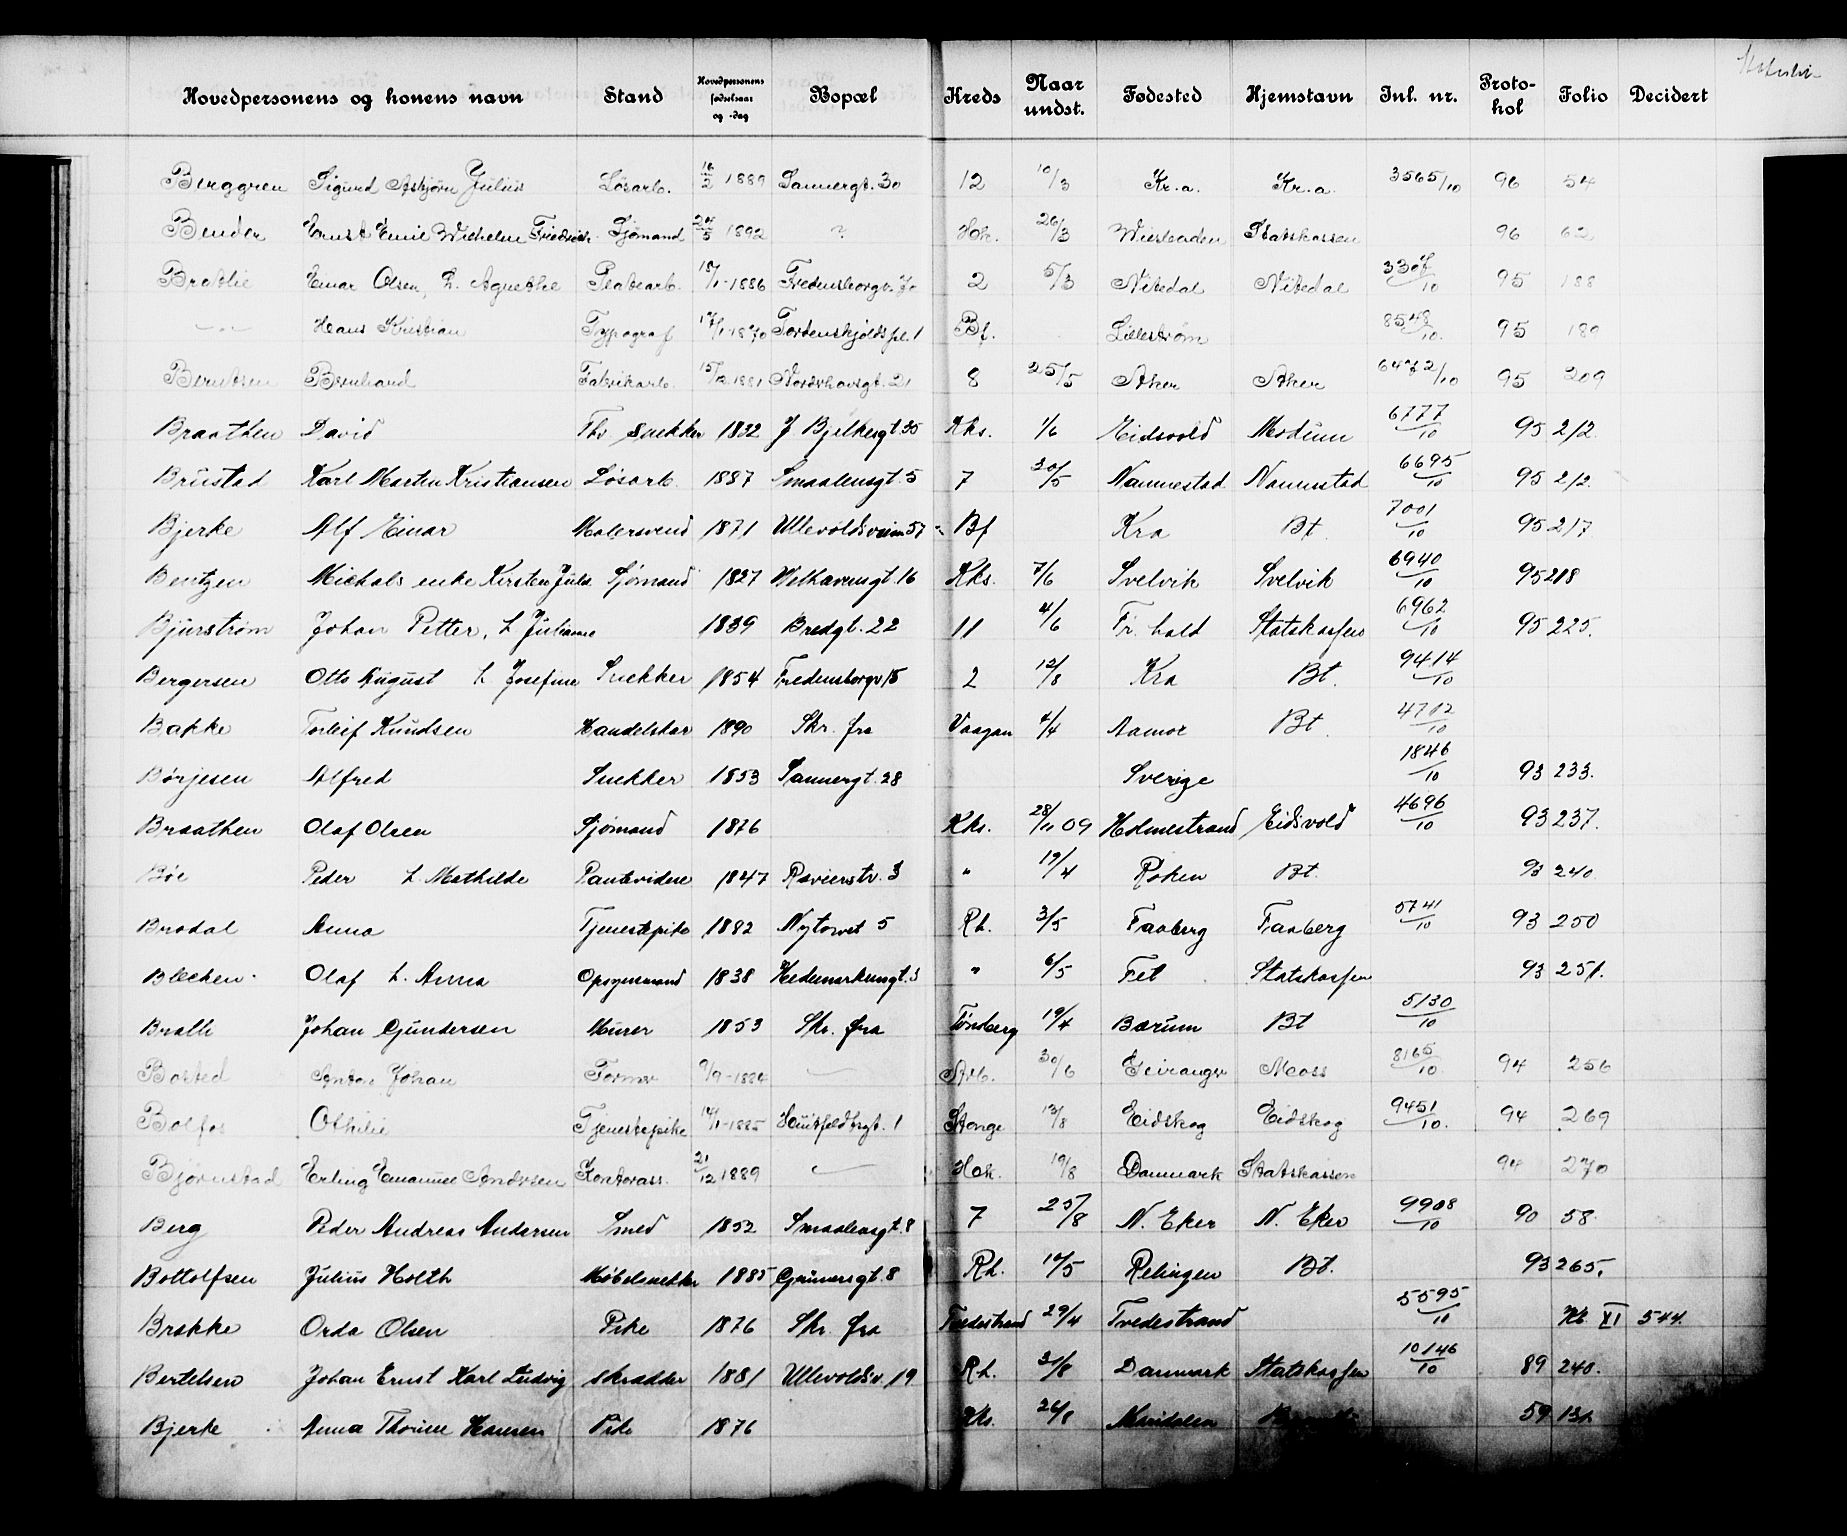 Hovedpersonens og konens navn Stand Hovedpersonens fødselsaar og -dag Bopæl Kreds Naar undst. Fødested Hjemstavn Inl. nr. Protokol Folio Decidert
Berggren Sigurd Asbjørn Julius Løsarb. 16/2 1889 Sannergt. 30 12 10/3 Kr.a. Kr.a. 3565/10 96 54
Bender Ernst Emil Wilhelm Friedrich Sjømand 24/5 1892 ? Hok. 26/3 Wiesbaden Statskassen 96 62
Bratlie Einar Olsen, h. Agnethe Pladearb. 1886 Fredensborgv. 2 5/3 Nitedal Nitedal 3307/10 95 188
—„— Hans Kristian Typograf 17/1-1870 Tordenskjoldspl. 1 Bf. Lillestrøm 8548/10. 95 189
Berntsen Bernhard Fabrikarb. 15/12 1881 Nordrhavsgt. 21 8 25/5 Aker Aker 6472/10 95 209
Braathen David Thv snekker 1832 J Bjelkesgt. 35 Kks. 1/6 Eidsvold Modum 6777/10 95 212.
Brustad Karl Martin Kristiansen Løsarb. 1887 Smaalensgt. 5 7 30/5 Nannestad Nannestad 6695/10 95 212.
Bjerke Alf Einar Malersvend 1871 Ullevoldsveien 57 Bf Kra Bt. 7001/10 95 217
Bentzen Michals enke Kirsten Jula Sjømand 1827 Welhavensgt. 16 Kks. 7/6 Svelvik Svelvik 6940/10 95 218
Bjurstrøm Johan Petter, h Julianne 1839 Bredgt. 22 11 4/6 Fr. hald Statskassen 6962/10 95 225.
Bergersen Otto August h Josefine Snekker 1854 Fredensborgv 15 2 12/8 Kra Bt. 9414/10
Bakke Torleif Knudsen Handelskar 1890 Skr. fra Vaagan 2/4 Aamot Bt. 4712/10
Børjesen Alfred Snekker 1853 Sannergt. 28 Sverige 1846/10 93 233.
Braathen Olaf Olsen Sjømand 1876 Kks. 28/11 09 Holmestrand Eidsvold 4696/10 93 237.
Bøe Peder h. Mathilde Pantevidere 1847 Rovierstv. 3 " 19/4 Røken Bt. 93 240.
Brodal Anna Tjenestepike 1882 Nytorvet 5 Rh. 3/5 Faaberg Faaberg 5741/10 93 250
Blecken. Olaf h. Anna Opsynsmand 1838 Hedemarkensgt. 3 " 6/5 Fet Statskassen 93 251.
Bratli Johan Gundersen Murer 1853 Skr. fra Tønsberg 19/4 Bærum Bt 5130/10
Bosted Anton Johan Former 9/9-1884 — Arb. 30/6 Moss 8165/10. 94 256
Bolfos Othilie Tjenestepike 14/1-1885 Huitfeldtsgt. 1 Stange 13/8 Eidskog Eidskog 9451/10. 94 269
Bjørnstad Erling Emanuel Andersen Kontorass. 21/12 1889 — Hok. 19/8 Danmark Statskassen 94 270
Berg Peder Andreas Andersen Smed 1852 Smaalensgt. 8 7 25/8 N. Eker N. Eker 9908/10 90 58.
Bottolfsen Julius Holth Møbelsnekker 1885 Grünersgt. 8 Rh. 10/5 Relingen Bt. 93 265.
Brakke Orda Olsen Pike 1876 Skr. fra Tvedestrand 29/4 Tvedestrand 5595/10 XI 544.
Bertelsen Johan Ernst Karl Ludvig skrædder 1881 Ullevoldsv. 19. Rh. 31/8 Danmark Statskassen 10146/10 89 240.
Bjerke Anna Thorine Hansen Pike 1876 Kks. 26/8 Maridalen 59 131